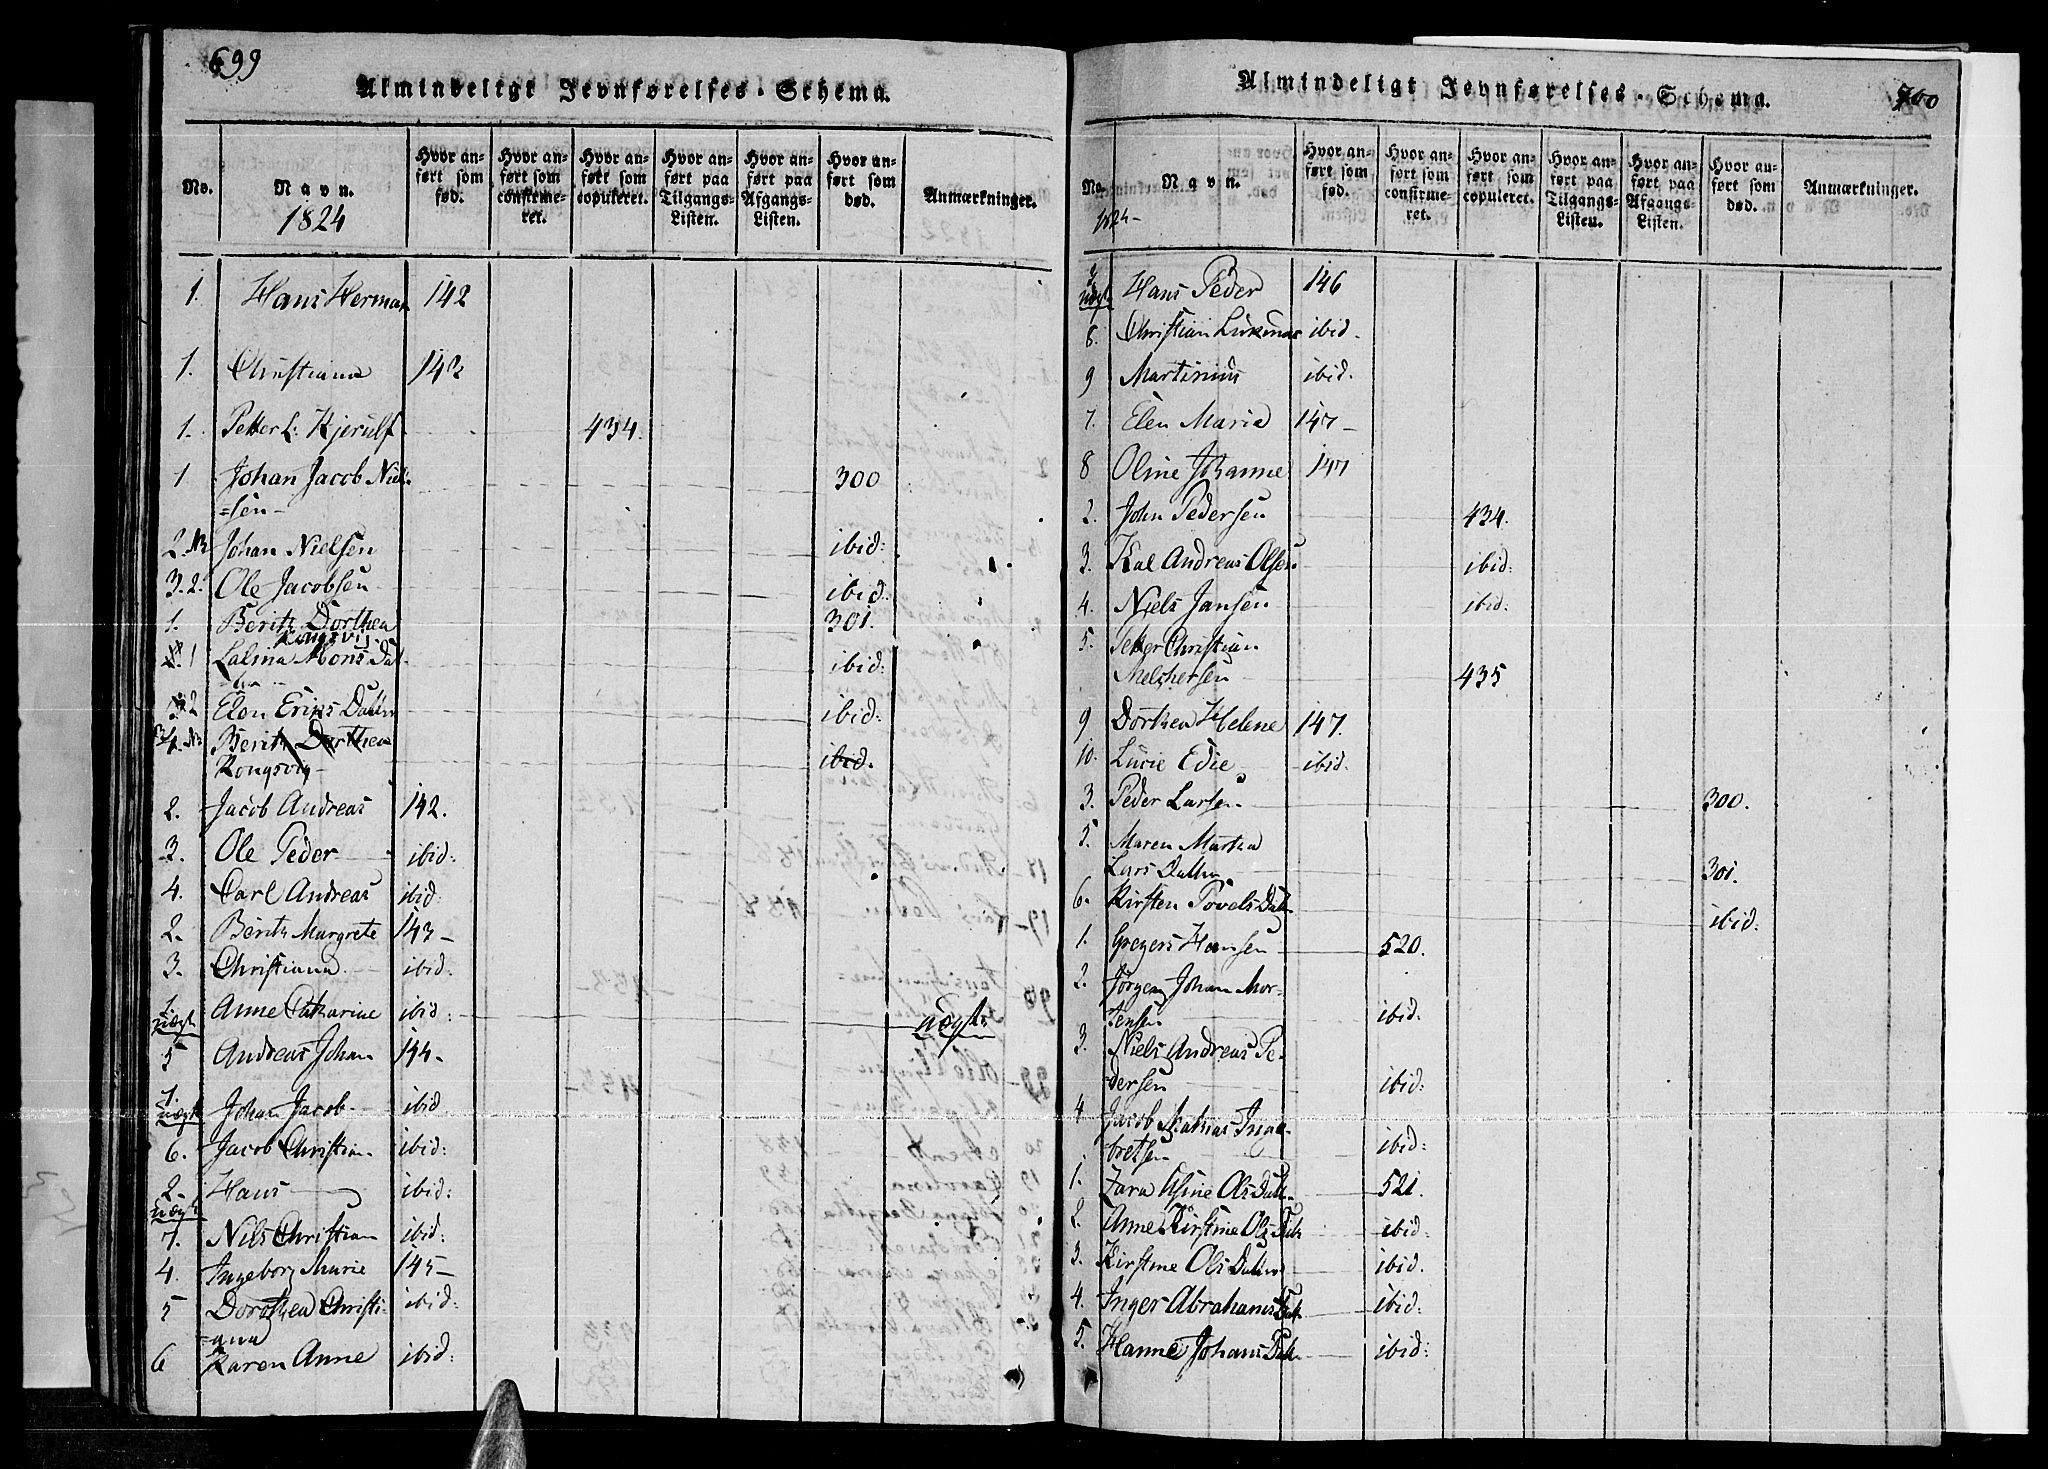 699
Almindeligt Jevnførelses-Schema.
No. Navn. Hvor anført som fød. Hvor anført som confirmeret. Hvor anført som copuleret. Hvor anført paa Tilgangs-Listen. Hvor anført paa Afgangs-Listen. Hvor anført som død. Anmærkninger.
1824
1. Hans Herman 142
1. Christiana 142
1. Petter L. Kjerulf 434.
1 Johan Jacob Niel-
=sen- 300
2. Johan Nielsen ibid:
3.2. Ole Jacobsen ibid:
1. Berith Dorthea 301.
Kongsvig
1 Lalina Mons Dat-
ibid:
2 Elen Erics Datter ibid:
Berith Dorthea
Kongsvig ibid.
2. Jacob Andreas 142.
3. Ole Peder ibid:
4. Carl Andreas ibid:
2. Berith Margrete 143-
3. Christiana ibid:
1. uægte Anne Catharine ibid: uægte
5 Andreas Johan 144-
1. uægte Johan Jacob- ibid
6. Jacob Christian ibid:
2. uægte Hans ibid:
7. Nils Christian ibid:
4. Ingeborg Marie 145-
5 Dorothea Christi-
=ana ibid:
6 Karen Anne ibid:
700
Almindeligt Jevnførelses-Schema.
No. Navn. Hvor anført som fød. Hvor anført som confirmeret. Hvor anført som copuleret. Hvor anført paa Tilgangs-Listen. Hvor anført paa Afgangs-Listen. Hvor anført som død. Anmærkninger.
1824-
3 uægte Hans Peder 146
8. Christian ibid.
9 Martinus ibid.
7. Elen Maria 147-
8 Oline Johanne 147
2. John Pedersen 434.
3. Kal Andreas Olsen ibid:
4. Niels Jansen ibid:
5. Petter Christian
Melchersen 435
9 Dorthea Helene 147.
10. Lucie Edie ibid.
3. Peder Larsen 300.
5. Maren Martha
Lars Datter 301.
6. Kirsten Povels Datt. ibid.
1. Gregers Hansen 520.
2. Jørgen Johan Mor-
tensen ibid:
3. Niels Andreas Pe-
dersen ibid:
4 Jacob Mathias Inge-
bretsen ibid:
1. Zara Elsine Ols Datt. 521.
2. Anne Kirstine Ols Datt ibid:
3. Kirstine Ols Datter ibid:
4. Inger Abrahams Datt. ibid:
5. Hanne Johans Datt. ibid: